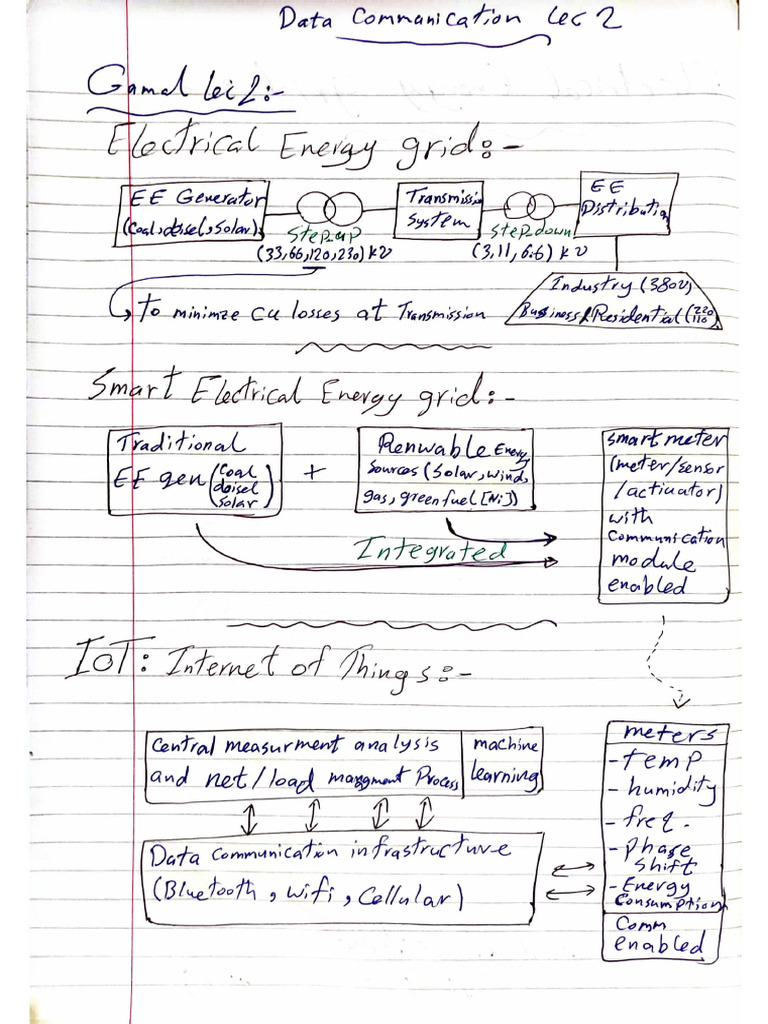 Data Communication Lec 2
Gamal Lec 2:-
Electrical Energy grid:-
EE Generator
(Coal, deisel, Solar)
Step-up
(33,66,120,230) kv
Transmission
System
Step-down
(3,11,6.6) kv
EE
Distribution
Industry (380v)
Business & Residential (220
110)
to minimze cu losses at Transmission
Smart Electrical Energy grid:-
Traditional
EE gen (Coal
deisel
solar)
+
Renwable Energy
Sources (Solar, wind,
gas, green fuel [Ni])
Integrated
smart meter
(meter/sensor
/actuator)
with
Communication
module
enabled
IoT: Internet of Things:-
Central measurment analysis
and net/load mangment Process
machine
learning
Data Communication infrastructure
(Bluetooth, wifi, Cellular)
meters
-temp
-humidity
-freq.
-phase
shift
-Energy
Consumption
Comm
enabled